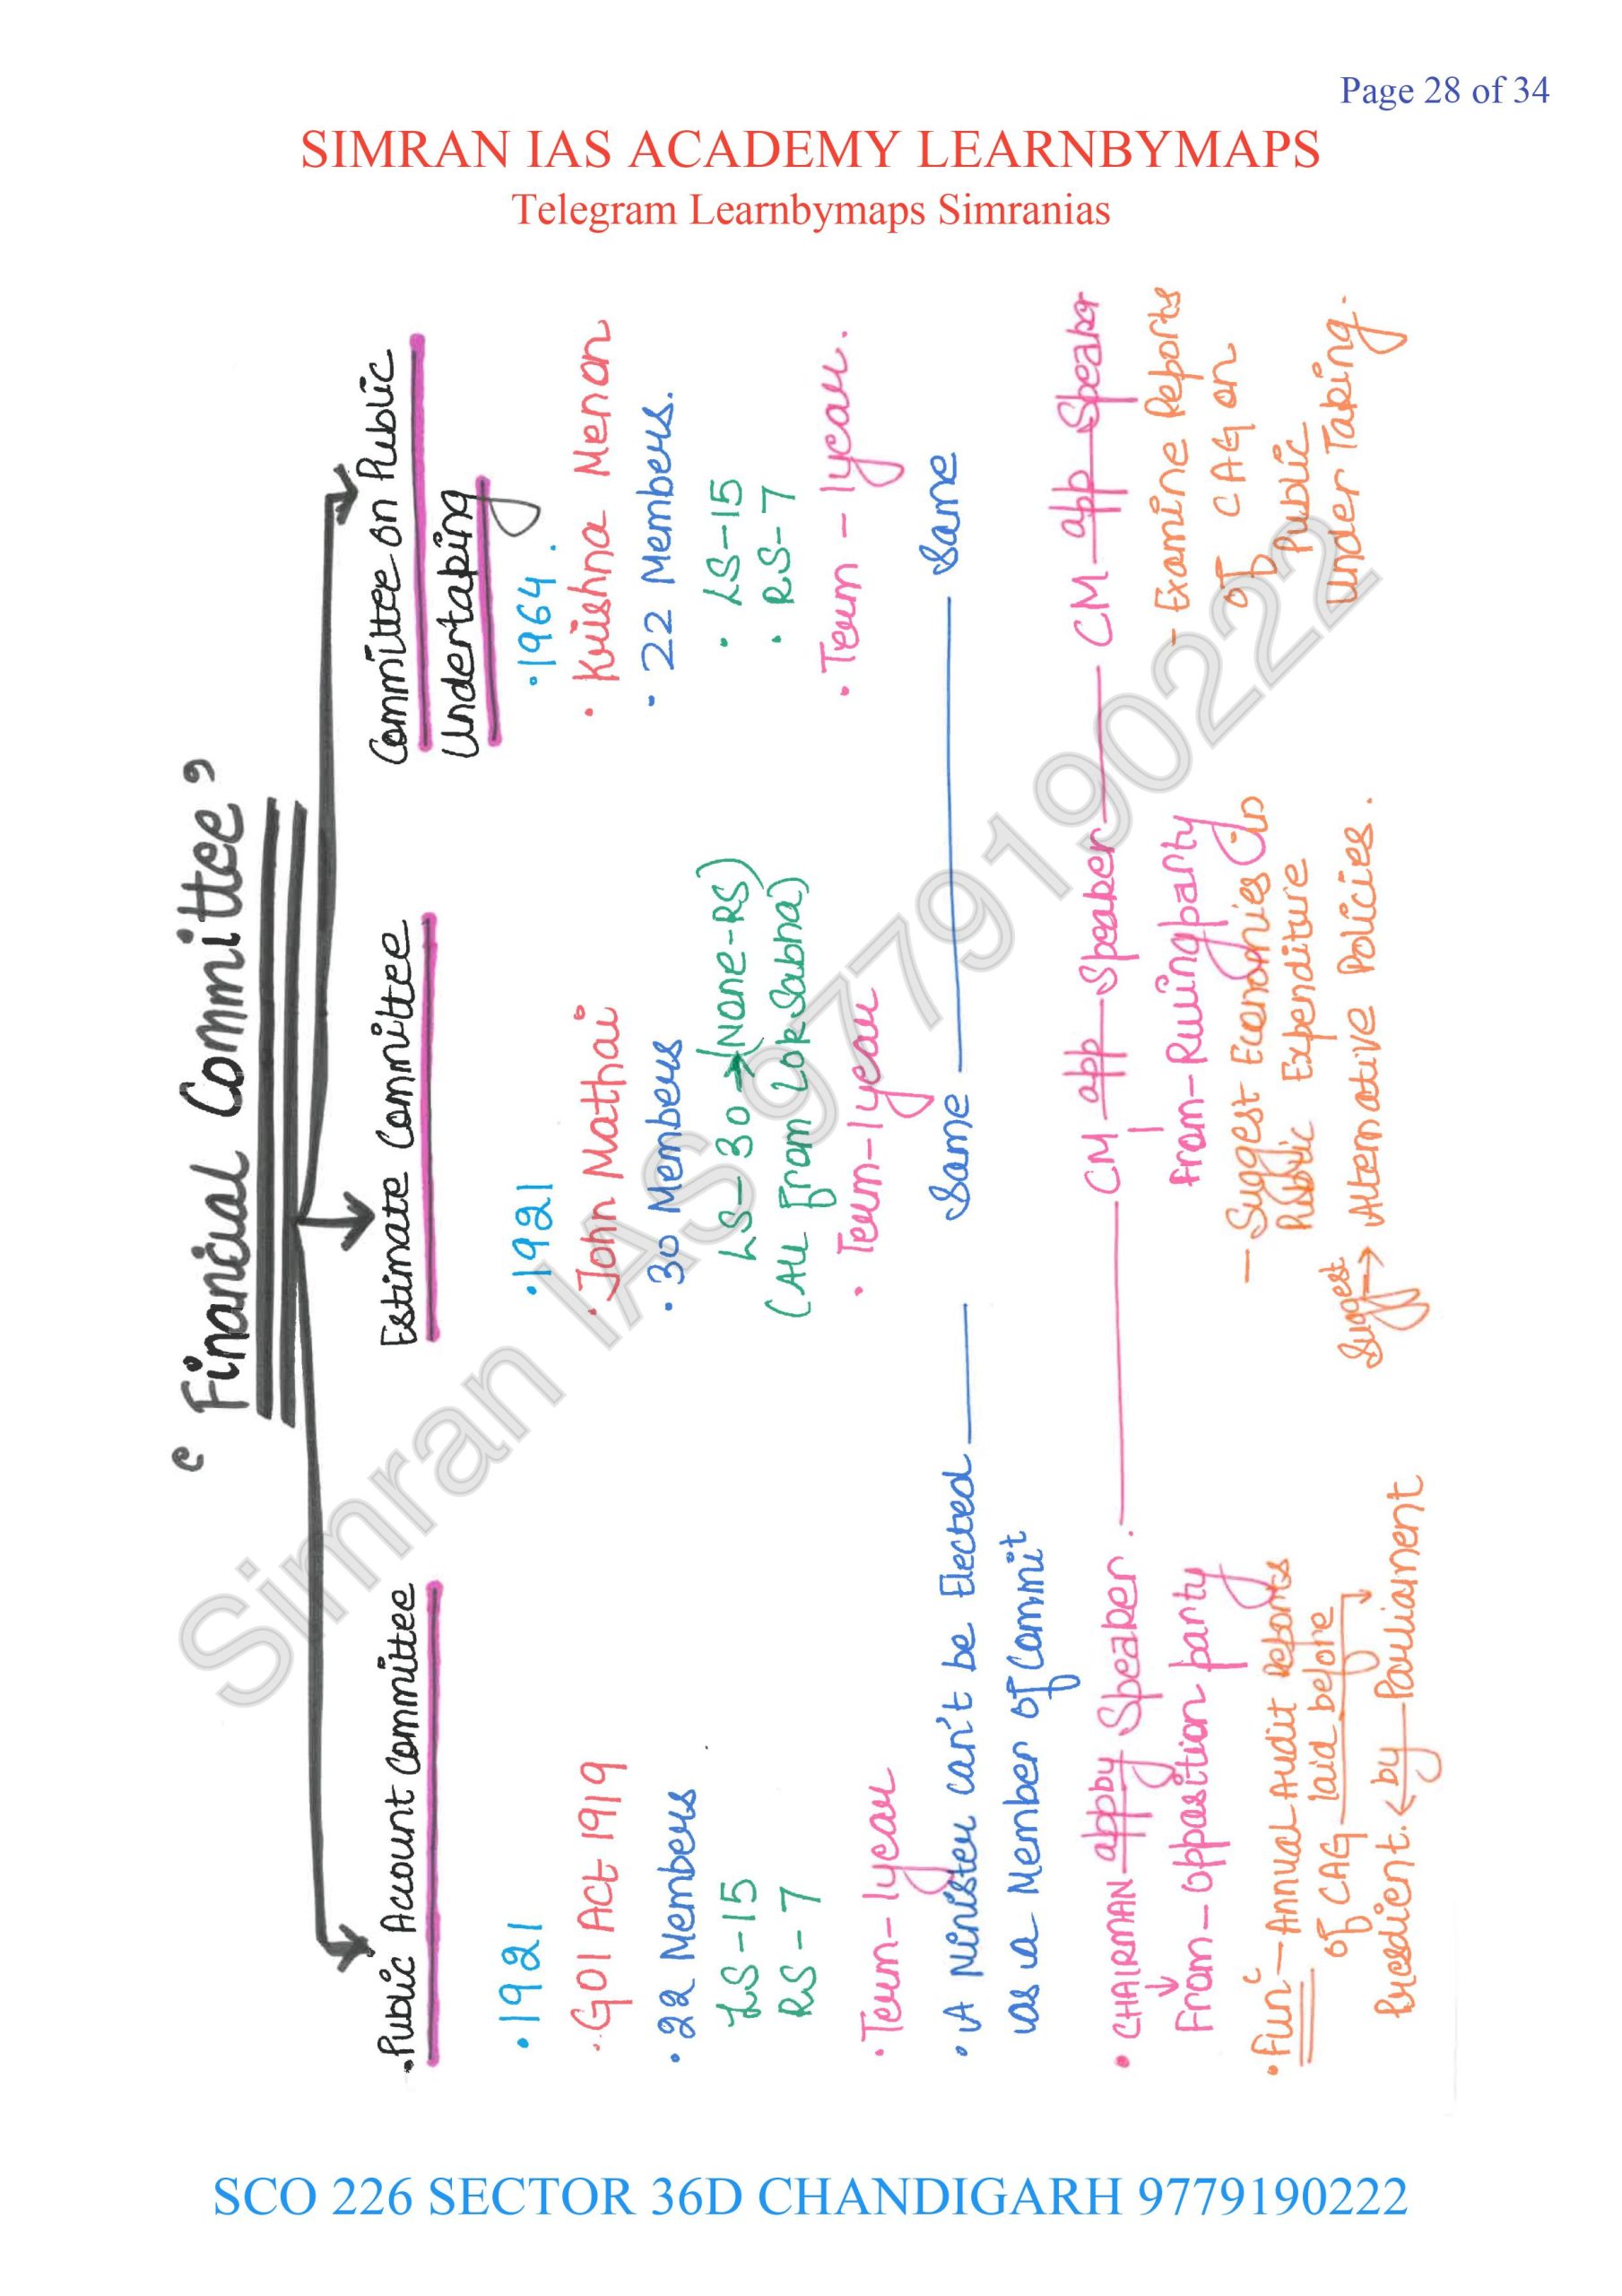 Page 28 of 34
SIMRAN IAS ACADEMY LEARNBYMAPS
Telegram Learnbymaps Simranias
" Financial Committee "
• Public Account Committee
• 1921
• GOI Act 1919
• 22 Members
LS - 15
RS - 7
• Term - 1 year
• A Minister can't be Elected
as a Member of Commit
• CHAIRMAN appby Speaker.
From - opposition party
• Func - Annual Audit Reports
of CAG laid before
by Parliament
Estimate Committee
• 1921
• John Mathai
• 30 Members
LS - 30 → (None - RS)
(All From Lok Sabha)
• Term - 1 year
Same
CM - app - Speaker
from - Ruling party
- Suggest Economies in
Public Expenditure
Suggest → Alternative Policies.
Committee on Public
Undertaking
• 1964.
• Krishna Menon
• 22 Members.
• LS - 15
• RS - 7
• Term - 1 year.
Same
CM - app - Speaker
- Examine Reports
of CAG on
Public
Under Taking.
Simran IAS 9779190222
SCO 226 SECTOR 36D CHANDIGARH 9779190222